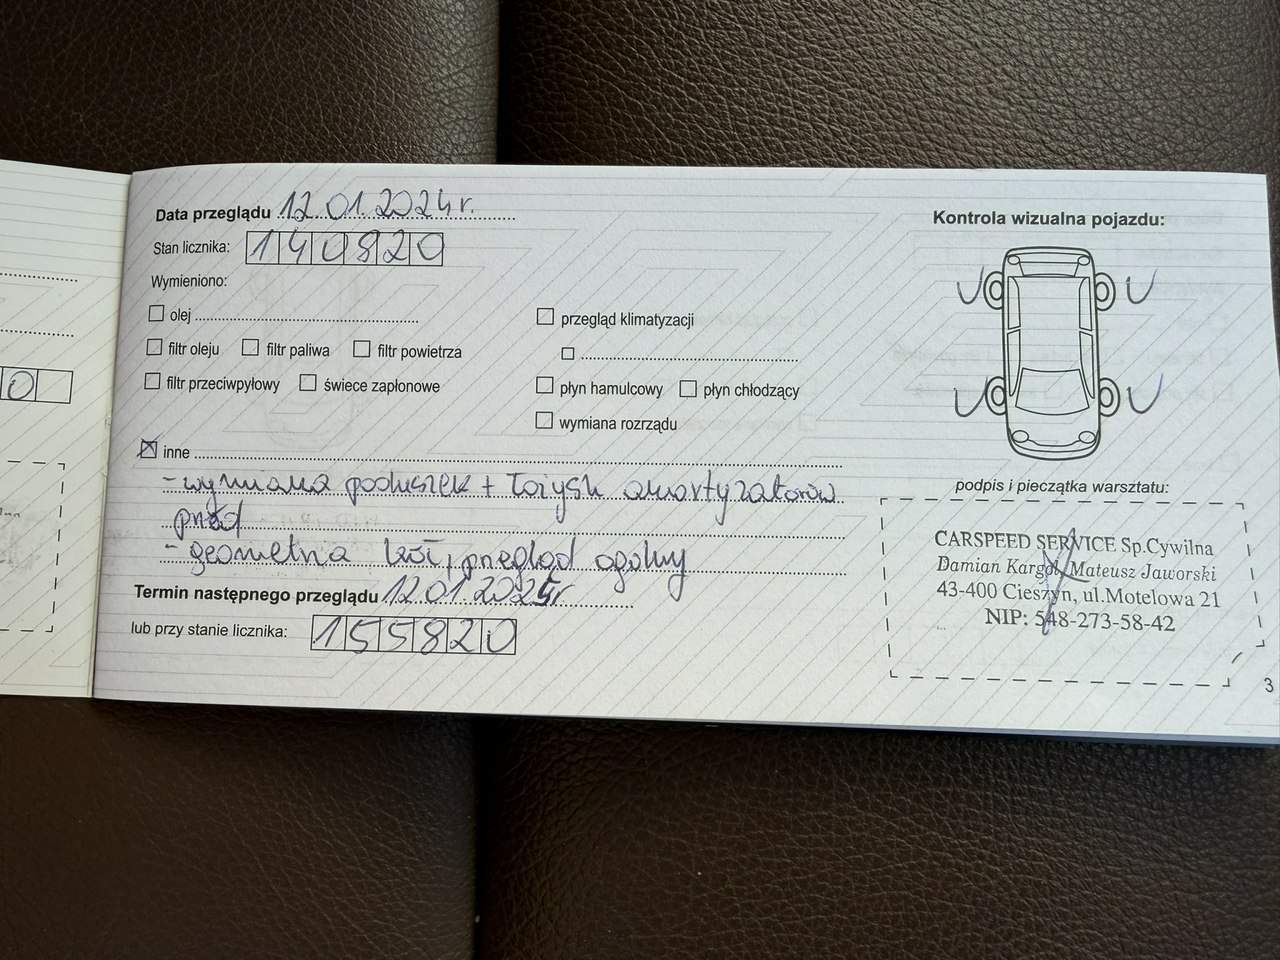 Data przeglądu 12.01.2024r.
Stan licznika: 140820
Wymieniono:
olej
filtr oleju filtr paliwa filtr powietrza
filtr przeciwpyłowy świece zapłonowe
przegląd klimatyzacji
płyn hamulcowy płyn chłodzący
wymiana rozrządu
inne
- wymiana poduszek + łożysk amortyzatorów
przód
- geometria kół, przegląd ogólny
Termin następnego przeglądu 12.01.2025r
lub przy stanie licznika: 155820
Kontrola wizualna pojazdu:
podpis i pieczątka warsztatu:
CARSPEED SERVICE Sp.Cywilna
Damian Kargol, Mateusz Jaworski
43-400 Cieszyn, ul.Motelowa 21
NIP: 548-273-58-42
3
0